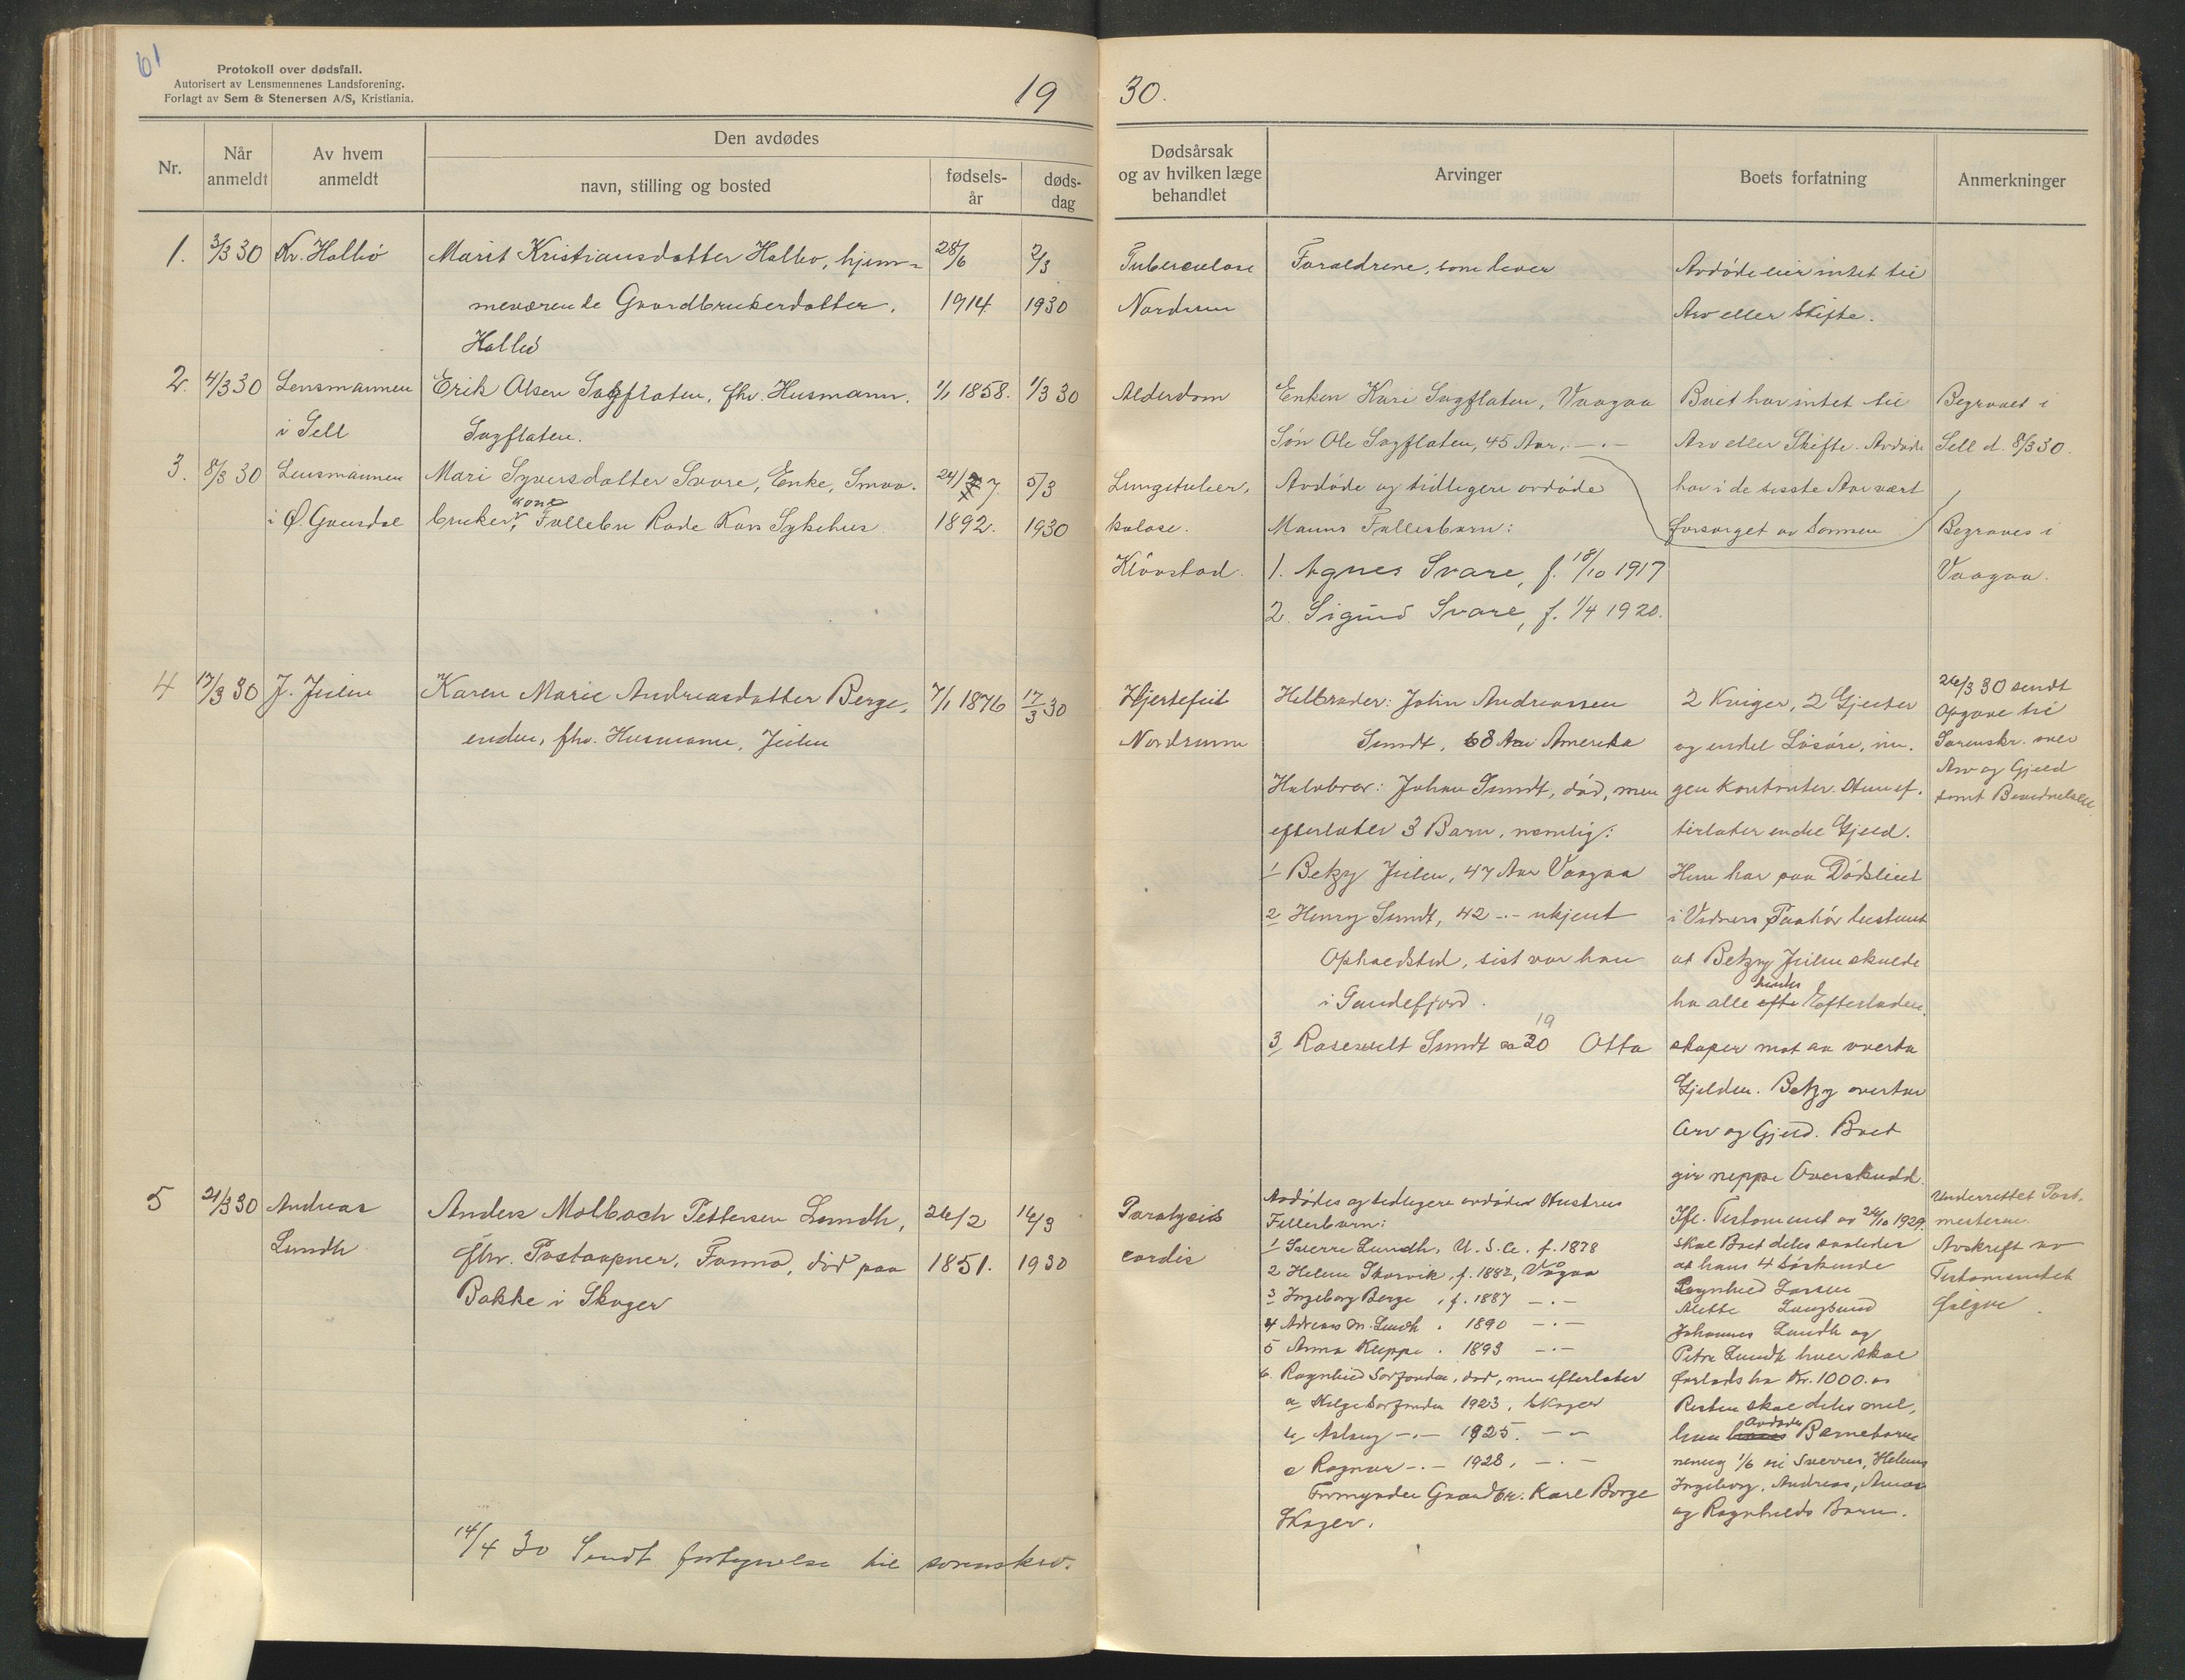 61
Protokoll over dødsfall.
Autorisert av Lensmennenes Landsforening.
Forlagt av Sem & Stenersen A/S, Kristiania.
19 30.
Nr.
Når anmeldt
Av hvem anmeldt
Den avdødes
navn, stilling og bosted
fødsels-år
døds-dag
Dødsårsak og av hvilken læge behandlet
Arvinger
Boets forfatning
Anmerkninger
1. 3/3 30 Kr. Halbo
Marit Kristiansdatter Halbo, hjem-
meværende Gaardbrukerdatter,
Halbo
28/6 1914
2/3 1930
Tuberculose
Nordrum
Foraldrene, som lever
Avdøde eier intet til
Arv eller Skifte.
2. 4/3 30 Lensmannen
i Sell
Erik Olsen Sagflaten, fhv. Husmann,
Sagflaten.
1/1 1858.
1/3 30
Alderdom
Enken Kari Sagflaten, Vaagaa
Søn Ole Sagflaten, 45 Aar, -.-
Boet har intet til
Arv eller Skifte. Avdøde
har i de sisste Aar vært
forsørget av Sønnen
Begravet i
Sell d. 8/3 30.
3. 8/3 30 Lensmannen
i Ø. Gausdal
Mari Syversdatter Svare, Enke, Smaa-
bruker, kone Kors Sykehus
24/7 1892.
5/3 1930
Lungetuber,
kulose.
Kløvstad.
Avdøde og tidligere avdøde
Manns Fellesbarn:
1. Agnes Svare, f. 18/10 1917
2. Sigurd Svare, f. 1/4 1920.
Begraves i
Vaagaa.
4 17/3 30 J. Julen
Karen Marie Andreasdatter Berge,
enden, fhv. Husmann, Julen
7/1 1876
17/3 30
Hjertefeil
Nordrum
Helbroder: John Andreassen
Sundt, 68 Aar Amerika
Halvbror: Johan Sundt, død, men
efterlater 3 Barn, nemlig:
1 Betzy Julen, 47 Aar Vaagaa
2 Henry Sundt, 42 -.- ukjent
Opholdsted, sist var han
i Sandefjord.
3 Rosevelt Sundt ca 30 19 Otta
2 Kviger, 2 Gjeiter
og endel Løsøre, in-
gen Kontanter. Hun ef-
terlater endel Gjeld.
Hun har paa Dødsleiet
i Vidners Paahør bestemt
at Betzy Julen skulde
ha alle efte hendes Efterladen-
skaper mot aa overta
Gjelden. Betzy overtar
Arv og Gjeld. Boet
gir neppe Overskudd.
26/3 30 sendt
Opgave til
Sorenskr. over
Arv og Gjeld
samt
5 21/3 30 Andreas
Lundh
Anders Molbach Pettersen Lundh,
fhv. Postaapner, død paa
Bakke i Skoger
26/2 1851.
16/3 1930
Paralysis
cordis
Avdødes og tidligere avdødes Hustrus
Fellesbarn:
1 Sverre Lundh, U.S.A. f. 1878
2 Helene Skorvik, f. 1882, Vågaa
3 Ingeborg Berge, f. 1887 -.-
4 Andreas M. Lundh. 1890 -.-
5 Anna Kleppe. 1893 -.-
6. Ragnhild, død, men efterlater
a Helge 1923, Skoger
b Aslaug -.- 1925. -.-
c Ragnar -.- 1928, -.-
Formynder Gaardbr. Karl Borge
Skoger.
Ifl. Testament av 24/10 1929
skal Boet deles saaledes
at hans 4 Søskende
Ragnhild Larsen
Alette
Johannes Lundh og
Petra Lundh hver skal
forlods ha Kr. 1000.00
Resten skal deles mel-
lem hans avdødes Barnebarn
1/6 til Sverres, Helenes
Ingeborg, Andreas, Annas
og Ragnhilds Barn.
Underrettet Post-
mesteren.
Avskrift av
Testamentet
følger.
14/4 30 Sendt fortegnelse til sorenskrv.